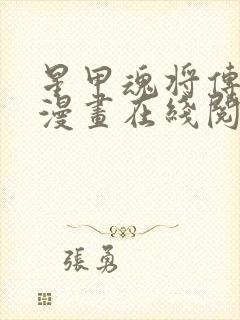 星甲魂将傳
漫畫在綫閱
張勇